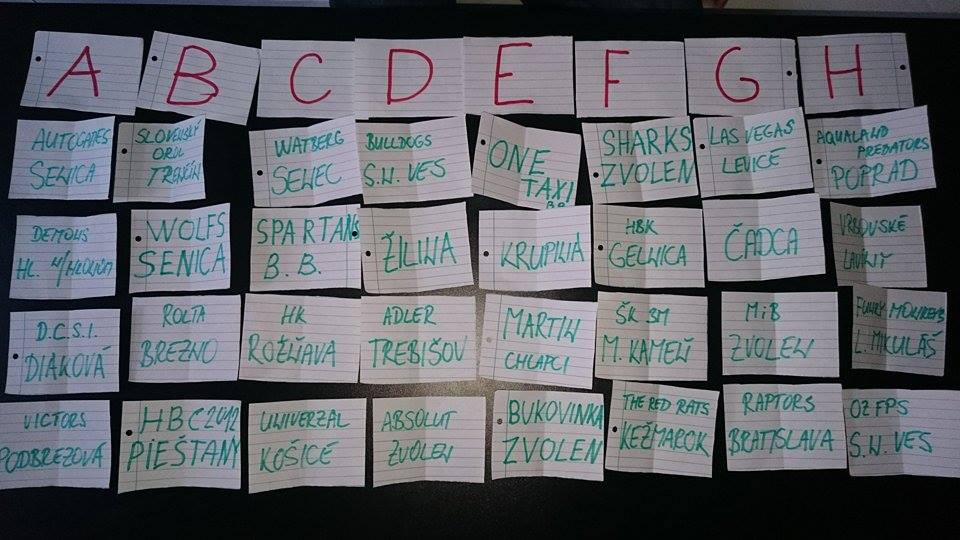 A
B
C
D
E
F
G
H
SENICA
SLOVENSKÝ
OROL
TRENČÍN
WATBERG
SENEC
BULLDOGS
S.N. VES
ONE
TAXI
B.B.
SHARKS
ZVOLEN
LAS VEGAS
LEVICE
AQUALAND
PREDATORS
POPRAD
DEMONS
HL.
WOLFS
SENICA
SPARTANS
B. B.
ŽILINA
KRUPINA
HBK
GELNICA
ČADCA
VRBOVSKÉ
LAVÍNY
D.C.S.I.
DIAKOVÁ
ROLTA
BREZNO
HK
ROŽŇAVA
ADLER
TREBIŠOV
MARTIN
CHLAPCI
ŠK 3M
M. KAMEŇ
MiB
ZVOLEN
L. MIKULÁŠ
VICTORS
PODBREZOVÁ
HBC 2012
PIEŠTANY
UNIVERZAL
KOŠICE
ABSOLUT
ZVOLEN
BUKOVINKA
ZVOLEN
THE RED RATS
KEŽMAROK
RAPTORS
BRATISLAVA
OZ FPS
S.N. VES